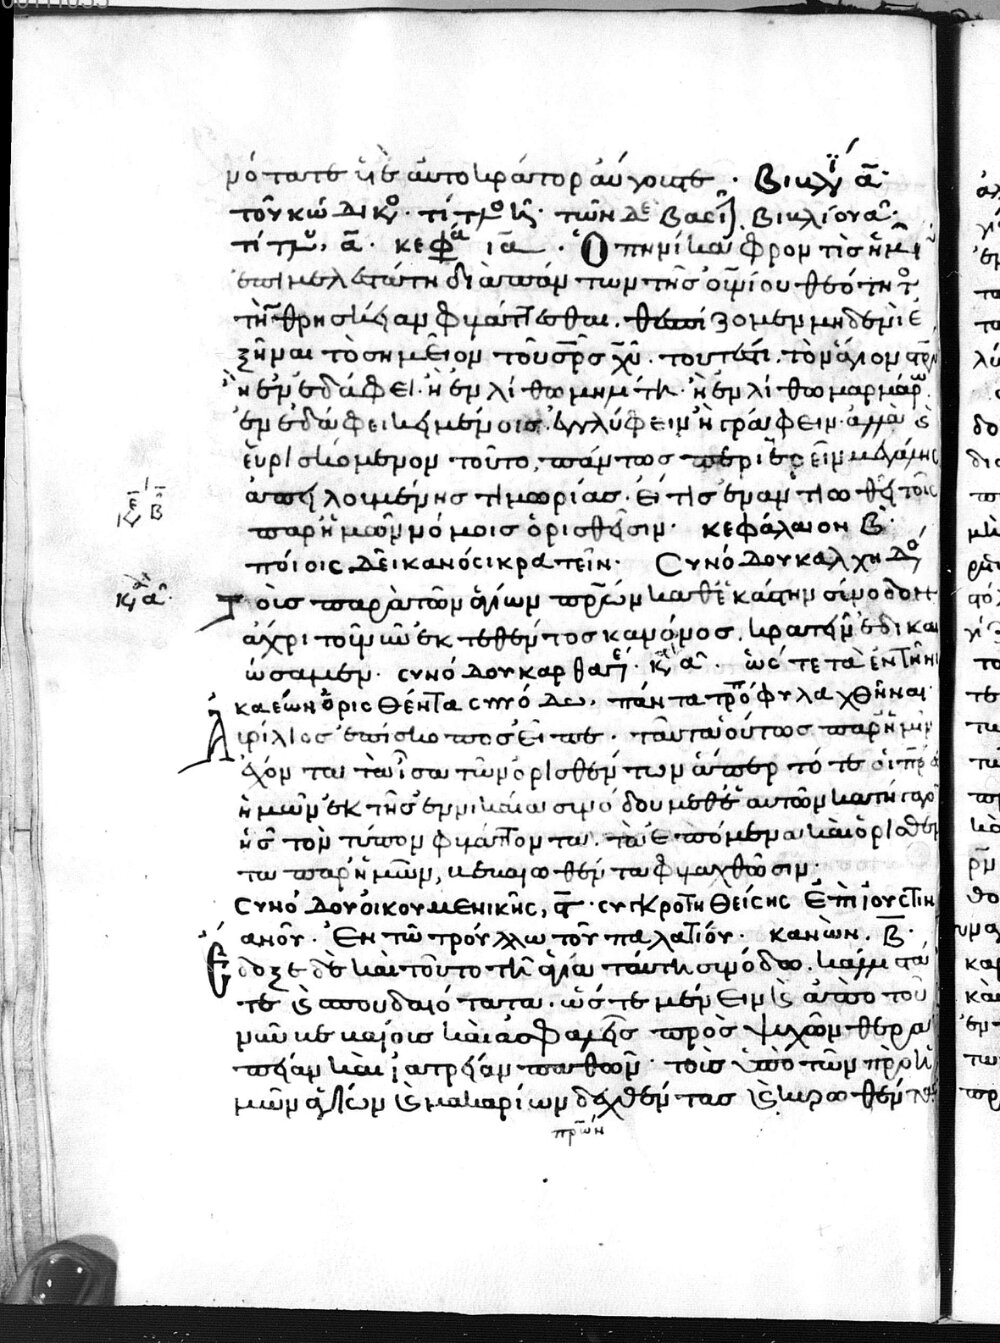 μότατε καὶ αὐτοκράτορ αὔγουστε. βιβλίου α.
τοῦ κώδικος. τίτλος κ. τῶν δὲ βασιλ βιβλίου α.
τίτλου, α. κεφα ια. Ὅπη μίκαι φροντὶς ἡμῖν
ἐπιμελεστάτη διὰ πάντων τῆς οὐρανίου θεότητος
τὴν θρησκείαν φυλάττεσθαι. θεσπίζομεν μηδενὶ ἐ
ξεῖναι τὸ σημεῖον τοῦ σρσ χυ. τουτέστι. τὸν ἅγιον
ἢ ἐν ἐδάφει. ἢ ἐν λίθω ἢ ἐν λίθω μαρμάρω
ἐν ἐδάφει κειμένοις. ἐγγλύφειν ἢ γράφειν. ἀλλὰ καὶ
εὑρισκόμενον τοῦτο, πάντως περιαιρεῖν μεγάλης
ἀποκειμένης τιμωρίας. εἴ τις ἐναντίω θῆ τοῖς
παρ ἡμῶν νόμοις ὁρισθεῖσιν. κεφάλαιον Β.
ποίοις δεῖ κανόσι κρατεῖν. Συνόδου καλχηδο
κ α.
Τοὺς παρὰ τῶν ἁγίων πρων καθ ἑκάστην σύνοδον
ἄχρι τοῦ νῦν ἐκτεθέντος κανόνος, κρατεῖν ἐδικαι
ώσαμεν. συνόδου καρθαγε. κ α. ὥστε τὰ ἐν τῆ νι
καέων ὁρισθέντα συνόδω, πάντα τρόπω φυλαχθῆναι
Αὐρίλιος ἐπίσκοπος εἶπε. ταῦτα οὕτως παρ ἡμῖν
ἔχονται τὰ ἴσα τῶν ὁρισθέντων ἅπερ τότε οἱ πρε
ἡμῶν ἐκ τῆς ἐν νικαία συνόδου μεθ ἑαυτῶν κατήγαγον
ἧς τὸν τύπον φυλάττονται. τὰ ἑπόμενα καὶ ὁρισθέν
τα παρ ἡμῶν, κεκαιωθέντα φυλαχθῶσιν.
συνόδου οἰκουμενικῆς, ϛ. συγκροτηθείσης ἐπὶ ἰουστιν
ιανοῦ. Ἐν τῶ τρούλλω τοῦ παλατίου. κανὼν. Β.
Ἔδοξε δὲ καὶ τοῦτο τῆ ἁγία ταύτη συνόδω. κάλλιστά
τε καὶ σπουδαιότατα. ὥστε μένειν καὶ ἀπὸ τοῦ
νῦν βεβαίους καὶ ἀσφαλεῖς πρὸς ψυχῶν θερα
πείαν καὶ ἰατρείαν παθῶν τοὺς ὑπὸ τῶν πρὸ ἡ
μῶν ἁγίων καὶ μακαρίων δεχθέντας καὶ κυρωθέντας